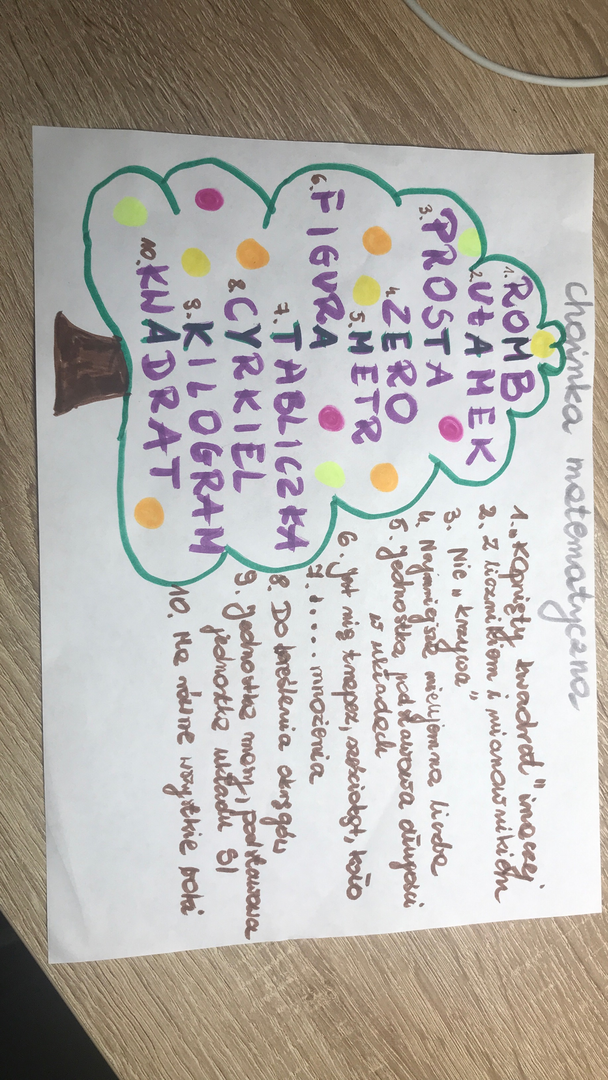 choinka matematyczna
1. ROMB
2. UŁAMEK
3. PROSTA
4. ZERO
5. METR
6. FIGURA
7. TABLICZKA
8. CYRKIEL
9. KILOGRAM
10. KWADRAT
1. „Kopnięty kwadrat" inaczej
2. Z licznikiem i mianownikiem
3. Nie „krzywa"
4. Najmniejsza nieujemna liczba
5. Jednostka podstawowa długości
w układach
6. Jest nią trapez, sześciokąt, koło
7. .... mnożenia
8. Do kreślenia okręgów
9. Jednostka masy, podstawowa
jednostka układu SI
10. Ma równe wszystkie boki